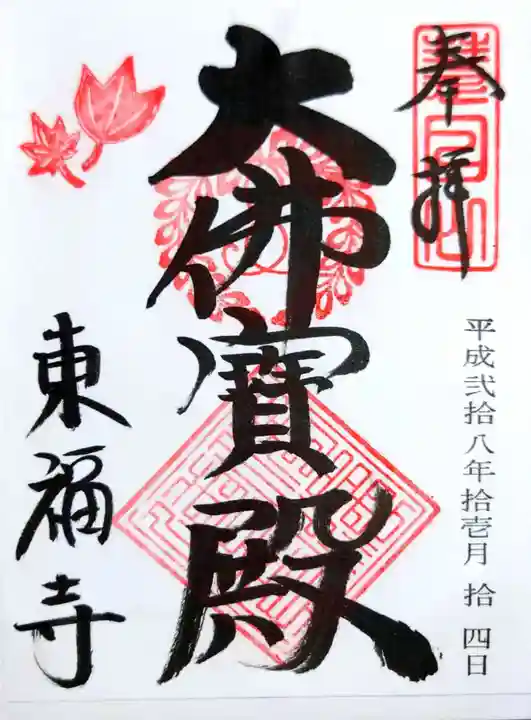 奉拝
平成弐拾八年拾壱月 拾 四日
大佛寶殿
東福寺